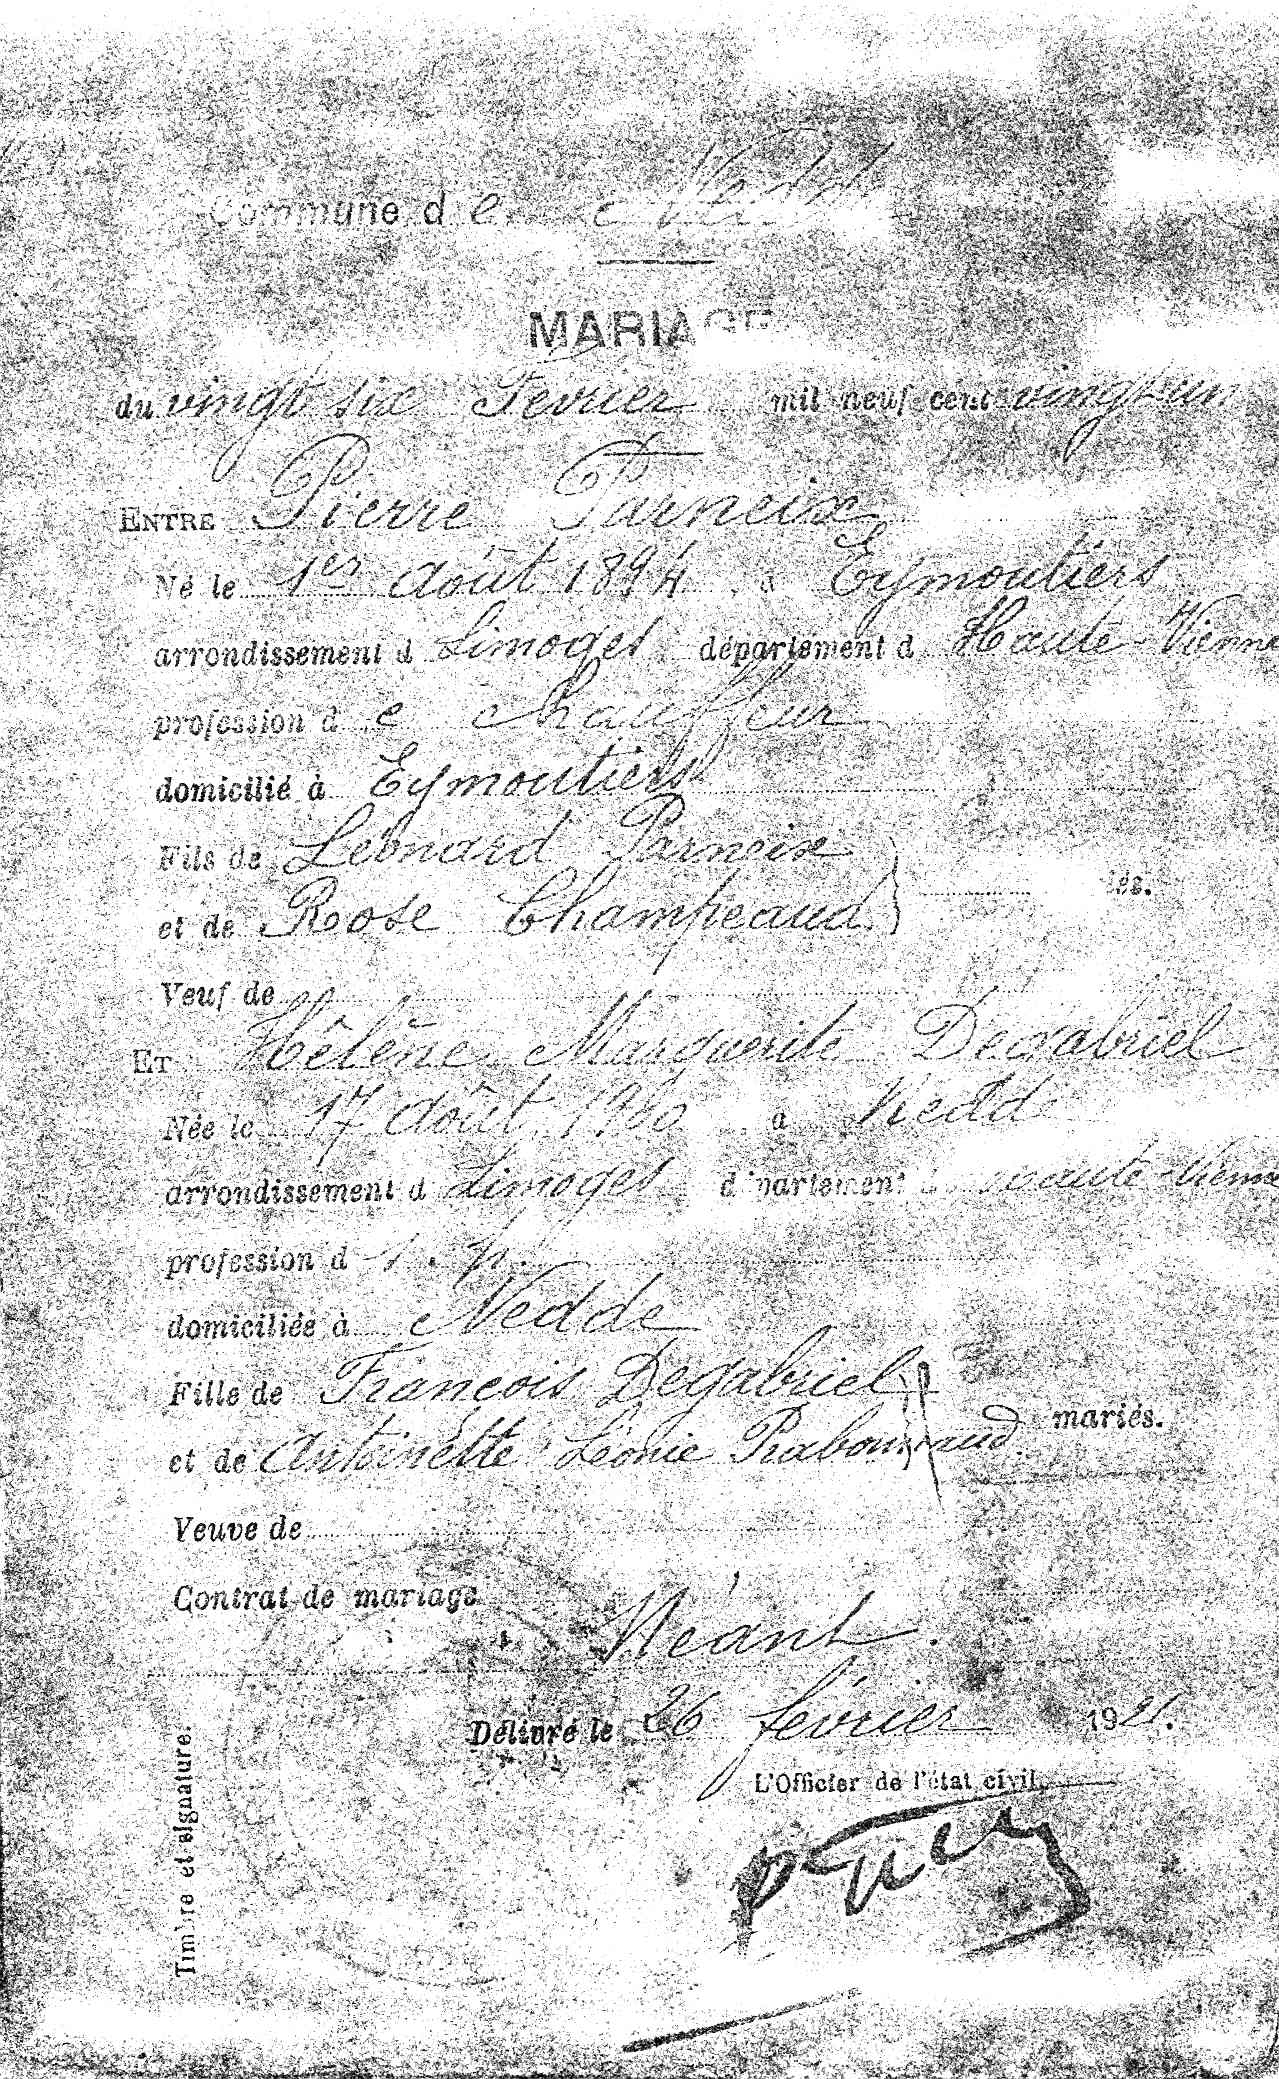 Commune de Nedde
MARIAGE
du vingt six Février mil neuf cent vingt un
ENTRE Pierre Parneix
Né le 1er Août 1894 à Eymoutiers
arrondissement d Limoges département d Haute-Vienne
profession d e Chauffeur
domicilié à Eymoutiers
Fils de Léonard Parneix
et de Rose Champeaud
Veuf de
ET Hélène Marguerite Degabriel
Née le 17 Août 1900 à Nedde
arrondissement d Limoges département Haute-Vienne
profession d s. p.
domiciliée à Nedde
Fille de François Degabriel
et de Antoinette Léonie mariés.
Veuve de
Contrat de mariage
Néant.
Délivré le 26 février 1921.
L'Officier de l'état civil,
Timbre et signature.